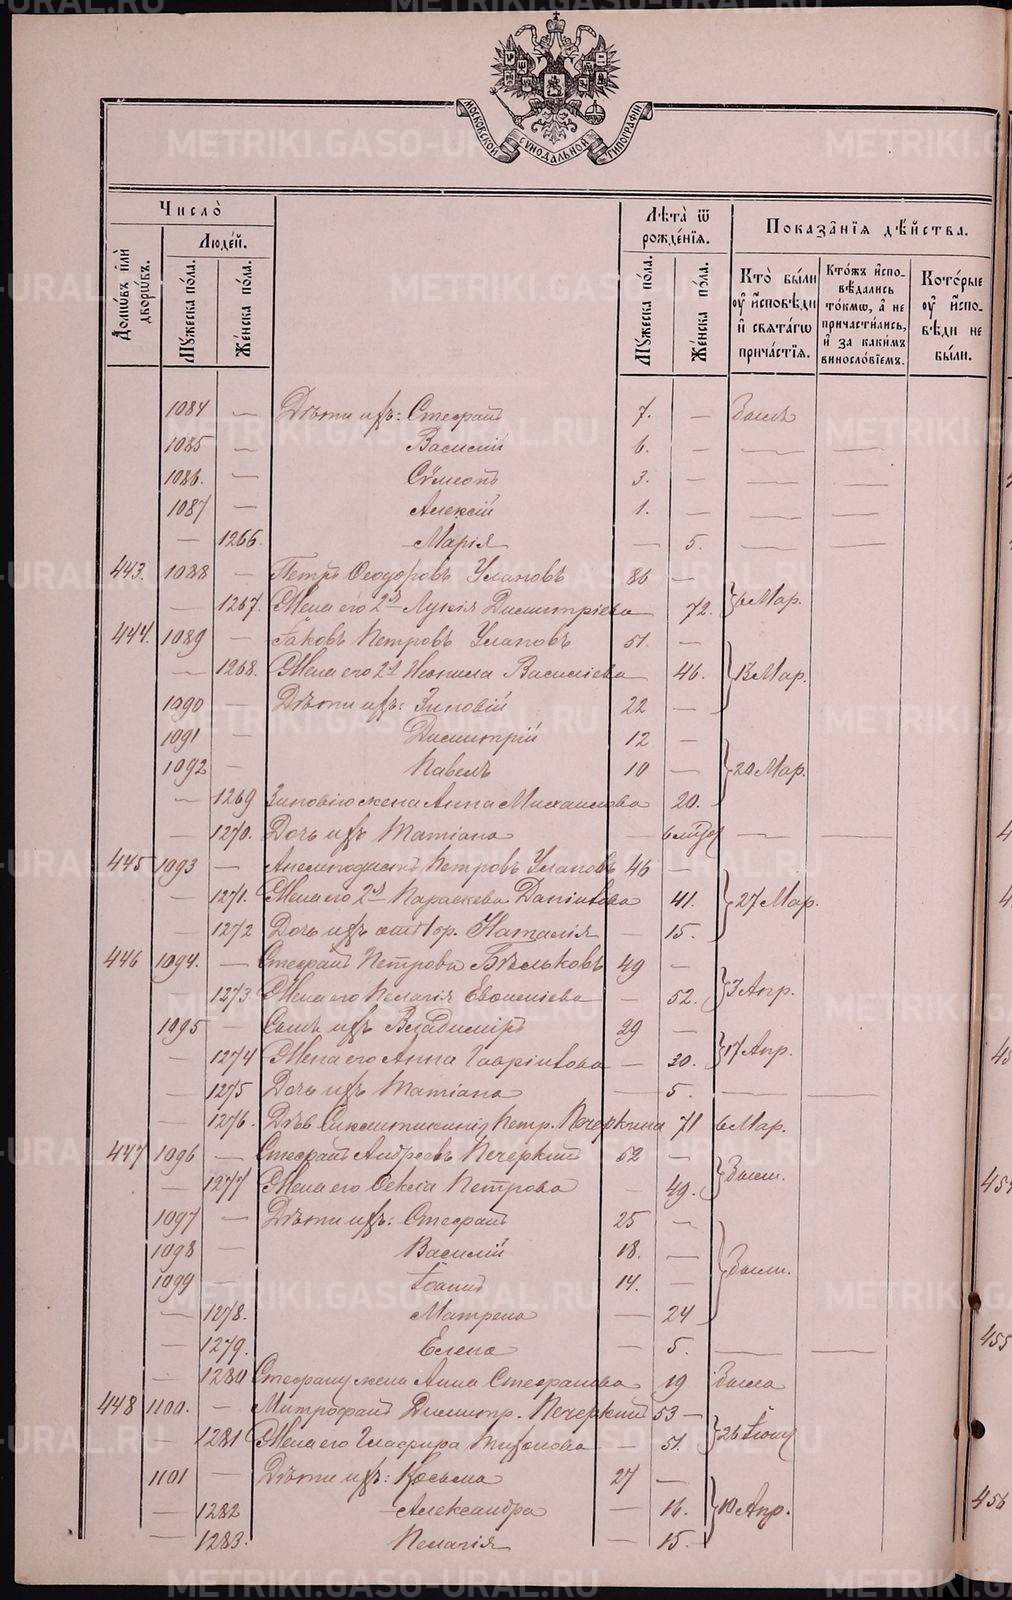 МОСКОВСКОЙ СѴНОДАЛЬНОЙ ТИПОГРАФІИ
Число̀
Лѣта̀ ѿ рожде́нїѧ.
Показа̑нїѧ дѣ́йства.
Домѡ́въ и҆лѝ дворѡ́въ.
Люде́й.
Мꙋ́жеска по́ла.
Же́нска по́ла.
Мꙋ́жеска по́ла.
Же́нска по́ла.
Кто̀ бы́ли ᲂу҆ и҆́сповѣди и҆ свѧта́гѡ прича́стїѧ.
Кто́жъ и҆спо-вѣдались то́кмѡ, а҆ не причасти́лись, и҆ за каки́мъ виносло́вїемъ.
Кото́рые ᲂу҆ и҆́спо-вѣди не бы́ли.
1084 — Дѣти ихъ: Стефанъ 7. — Былъ
1085 — Василій 6. — — —
1086. — Сѵмеонъ 3. — — —
1087 — Алексій 1. — — —
— 1266. Марія — 5. — —
443. 1088 — Петръ Ѳеодоровъ Улановъ 86 —
— 1267. Жена его 2я Лукія Димитріева — 72. } 6 Мар.
444. 1089 — Іаковъ Петровъ Улановъ 51. —
— 1268. Жена его 2я Неонила Василіева — 46. } 13 Мар.
1090 — Дѣти ихъ: Зиновій 22 —
1091 — Димитрій 12 —
1092 — Павелъ 10 — } 20 Мар.
— 1269 Зиновію жена Анна Михаилова 20.
— 1270. Дочь ихъ Татіана — — —
445 1093 — Анемподистъ Петровъ Улановъ 46 —
— 1271. Жена его 2я Параскева Даніилова 41. } 27 Мар.
— 1272 Дочь ихъ Наталія — 15.
446 1094. — Стефанъ Петровъ Бѣльковъ 49 —
— 1273. Жена его Пелагія Евѳиміева — 52. } 3 Апр.
1095 — Сынъ ихъ Владиміръ 29 —
— 1274 Жена его Анна Гавріилова — 30. } 17 Апр.
— 1275 Дочь ихъ Татіана — 5. — —
— 1276. Дѣв. Петр. Печеркина 71 6 Мар.
447 1096 — Стефанъ Андреевъ Печеркинъ 52 —
— 1277 Жена его Ѳекла Петрова — 49. } Были.
1097 — Дѣти ихъ: Стефанъ 25 —
1098 — Василій 18. — } Были.
1099 — Іоаннъ 14. —
— 1278. Матрена — 24
— 1279. Елена — 5. — —
— 1280 Стефану жена Анна Стефанова 19 Была
448 1100. — Митрофанъ Димитр. Печеркинъ 53 —
— 1281 Жена его Глафира Тихонова — 51. } 26 Іюня
1101 — Дѣти ихъ: Косьма 27 —
— 1282 Александра — 16. } 10 Апр.
— 1283. Пелагія — 15.
455
456
METRIKI.GASO-URAL.RU